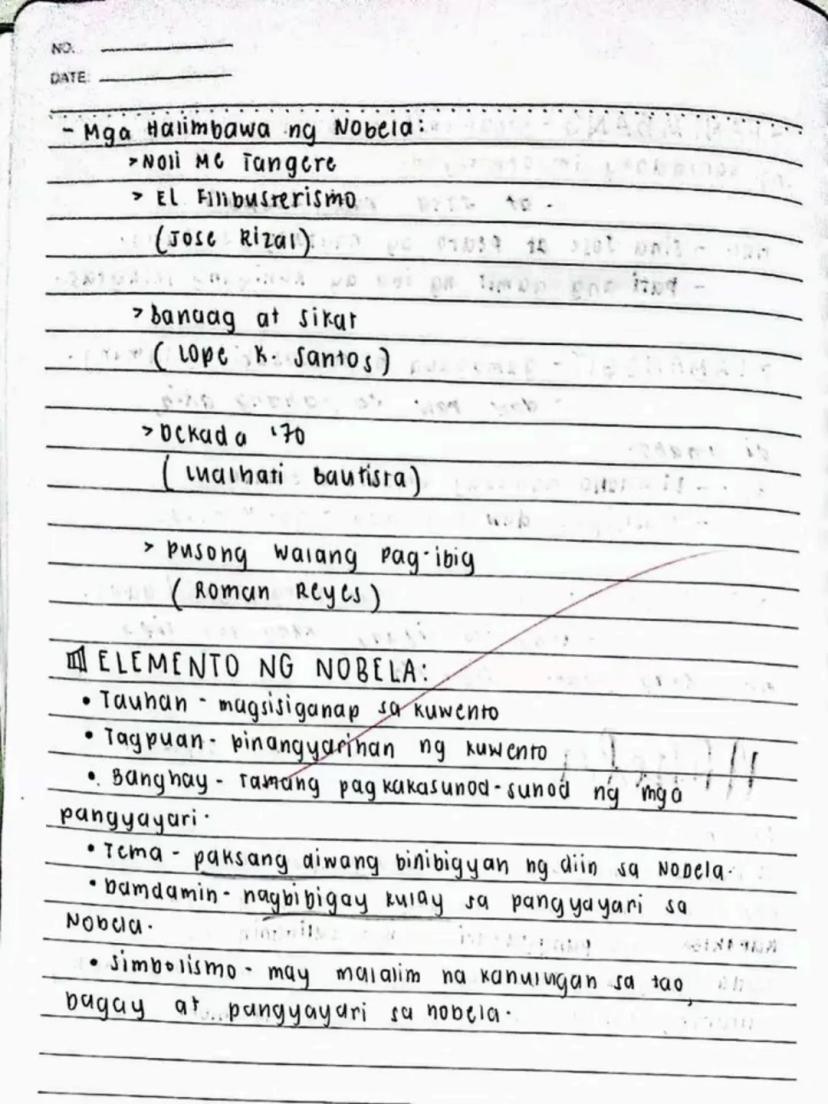 NO.
DATE:
- Mga Halimbawa ng Nobela:
> Noli Me Tangere
> El Filibusterismo
(Jose Rizal)
> Banaag at Sikat
( Lope K. Santos)
> Dekada '70
( Lualhati Bautista)
> Pusong Walang Pag-ibig
( Roman Reyes)
ELEMENTO NG NOBELA:
• Tauhan - magsisiganap sa kuwento
• Tagpuan - pinangyarihan ng kuwento
• Banghay - tamang pagkakasunod-sunod ng mga
pangyayari.
• Tema - paksang diwang binibigyan ng diin sa Nobela.
• Damdamin - nagbibigay kulay sa pangyayari sa
Nobela.
• Simbolismo - may malalim na kahulugan sa tao,
bagay at pangyayari sa nobela.